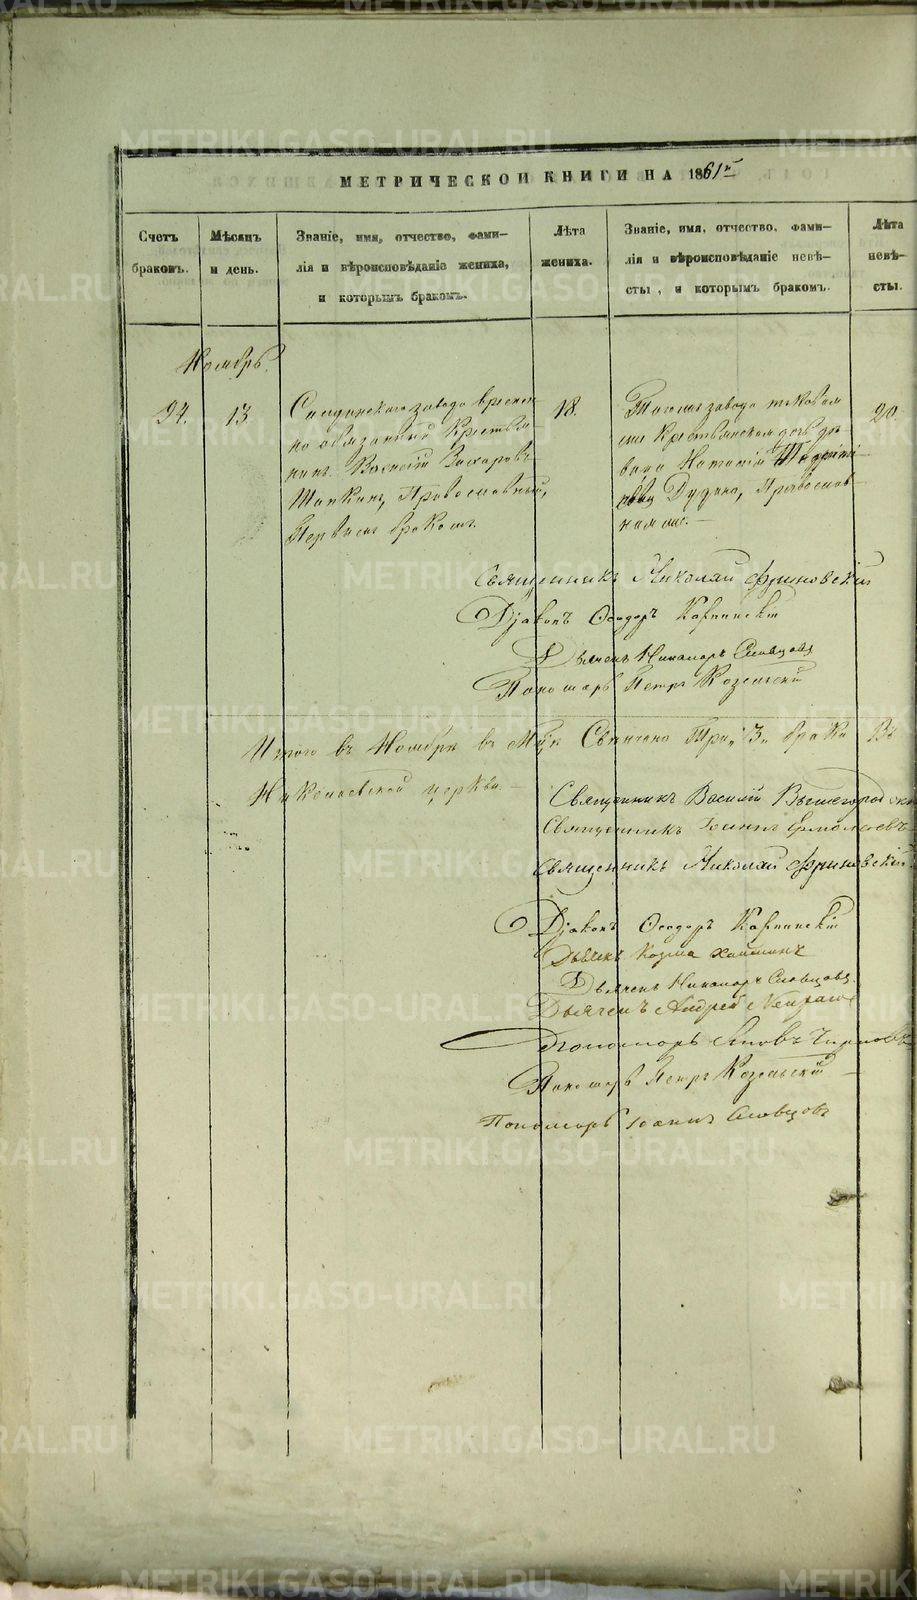 МЕТРИЧЕСКОЙ КНИГИ НА 1861й
Счетъ браковъ.
Мѣсяцъ и день.
Званіе, имя, отчество, фами-
лія и вѣроисповѣданіе жениха,
и которымъ бракомъ.
Лѣта жениха.
Званіе, имя, отчество, фами-
лія и вѣроисповѣданіе невѣ-
сты, и которымъ бракомъ.
Лѣта невѣ-
сты.
Ноябрь.
94.
13.
завода времен
но обязанный Крестья-
нинъ Василій Захаровъ
Шапкинъ, Православный,
Первымъ бракомъ.
18.
завода таковая
же Крестьянская дочь дѣ
вица Наталія
Дудина, Православ
ная
20
Священникъ Николай Флоровскій
Діаконъ Ѳеодоръ Карпинскій
Дьячекъ Никаноръ Словцовъ
Пономарь Петръ Козельскій
Итого въ Ноябрѣ въ М-цѣ Свѣнчано Три „3„ брака Въ
Николаевской церкви.
Священникъ Василій
Священникъ Іоаннъ Ермолаевъ
Священникъ Николай Флоровскій
Діаконъ Ѳеодоръ Карпинскій
Дьячекъ Козма
Дьячекъ Никаноръ Словцовъ
Дьячекъ Андрей
Пономарь
Пономарь Петръ Козельскій
Пономарь Іоаннъ Словцовъ
METRIKI.GASO-URAL.RU